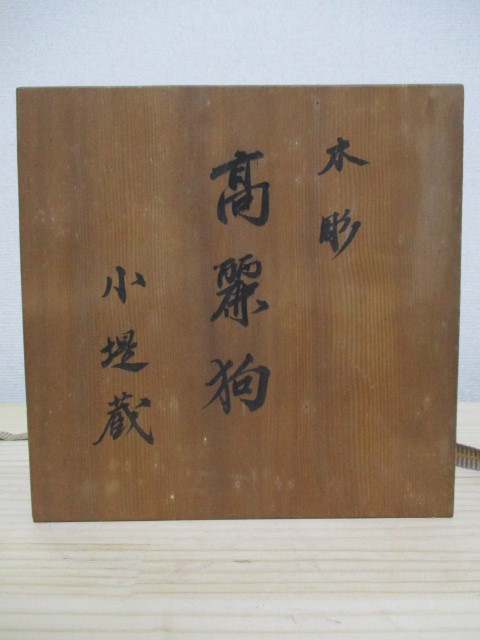 木彫
高麗狗
小堤蔵